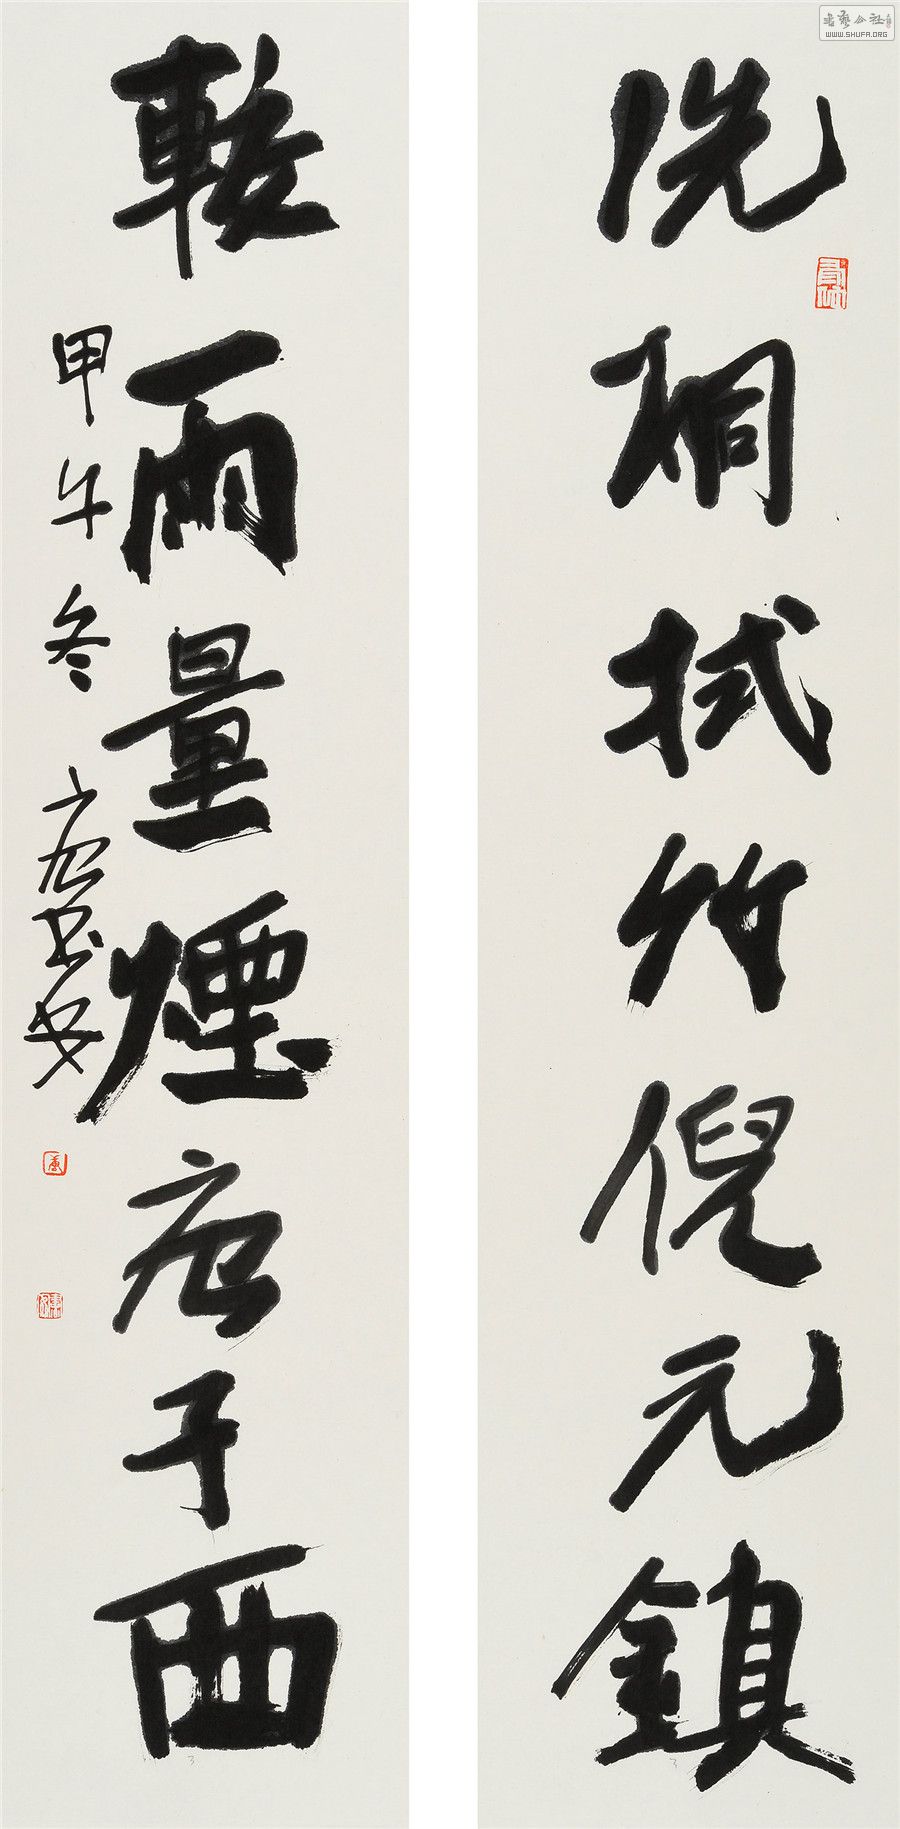 書藝公社
WWW.SHUFA.ORG
洗桐拭竹倪元鎮
較雨量煙唐子西
甲午冬 唐书安